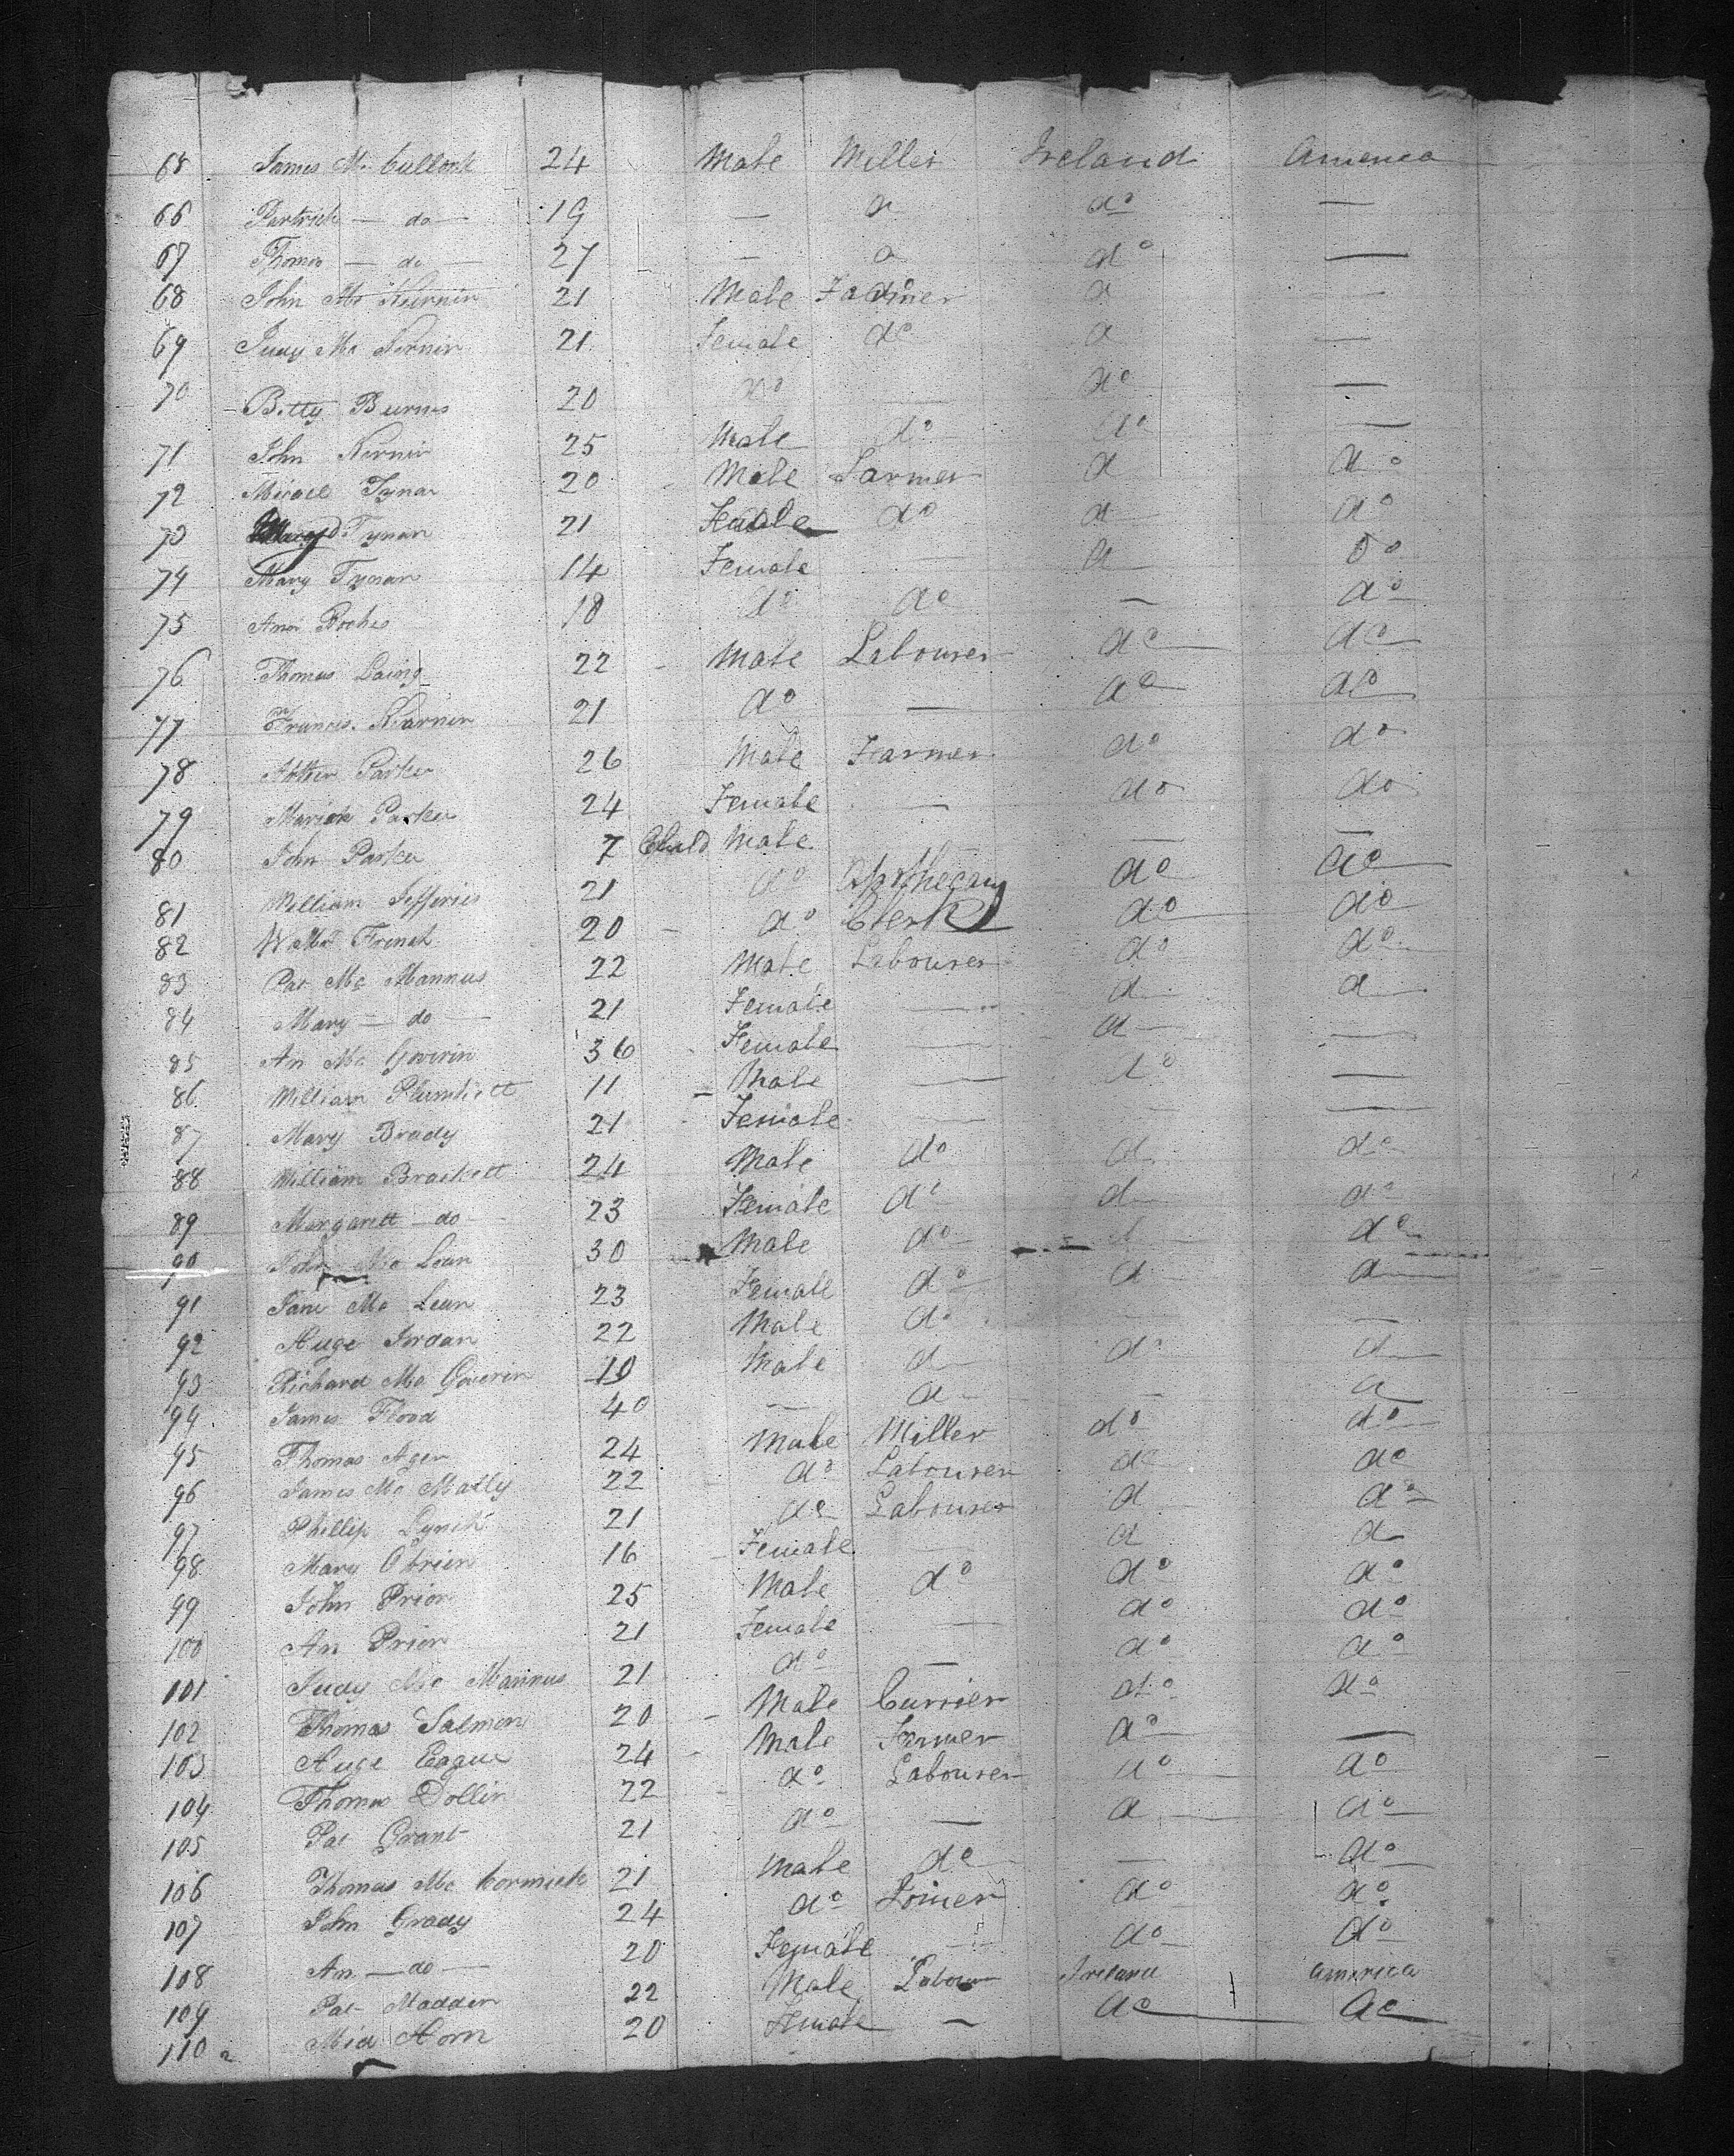 65 James Mc Cullock 24 Male Miller Ireland America
66 Partrick — do — 19 — do do —
67 Thomas — do — 27 — do do —
68 John Mc Kernin 21 Male Farmer do —
69 Judy Mc Kernin 21 Female do do —
70 Betty Burns 20 do — do —
71 John Kernin 25 Male do do —
72 Micael Tynan 20 Male Farmer do do
73 Tynan 21 do do do
74 Mary Tynan 14 Female — do do
75 Ann 18 do do — do
76 Thomas Laing 22 Male Labourer do do
77 Frances Kernin 21 do — do do
78 Parker 26 Male Farmer do do
79 Mariah Parker 24 Female — do do
80 John Parker 7 Child Male — —
81 William Jefferies 21 do Apothecary do do
82 French 20 do Clerk do do
83 Pat Mc Mannus 22 Male Labourer do do
84 Mary — do — 21 Female — do do
85 An Mc Goverin 36 Female — do —
86 William Plunkett 11 Male — do —
87 Mary Brady 21 Female — — —
88 William Brackett 24 Male do do do
89 Margarett — do — 23 Female do do do
90 John Mc Lean 30 Male do do do
91 Jane Mc Lean 23 Female do do do
92 Huge Jordan 22 Male do — —
93 Richard Mc Goverin 10 Male do do do
94 James Flood 40 — do — do
95 Thomas Ager 24 Male Miller do do
96 James Mc Mally 22 do Labourer do do
97 Phillip Lynch 21 do Labourer do do
98 Mary Obrien 16 Female — do do
99 John Prior 25 Male do do do
100 An Prior 21 Female — do do
101 Judy Mc Mannus 21 do — do do
102 Thomas Salmon 20 Male Currier do do
103 Huge Eague 24 Male Farmer do —
104 Thomas Dollin 22 do Labourer do do
105 Pat Grant 21 do — do do
106 Thomas Mc Cormick 21 Male do — do
107 John Grady 24 do Joiner do do
108 An — do — 20 Female — do do
109 Pat Madden 22 Male Labour Ireland America
110 Horn 20 Female — do do